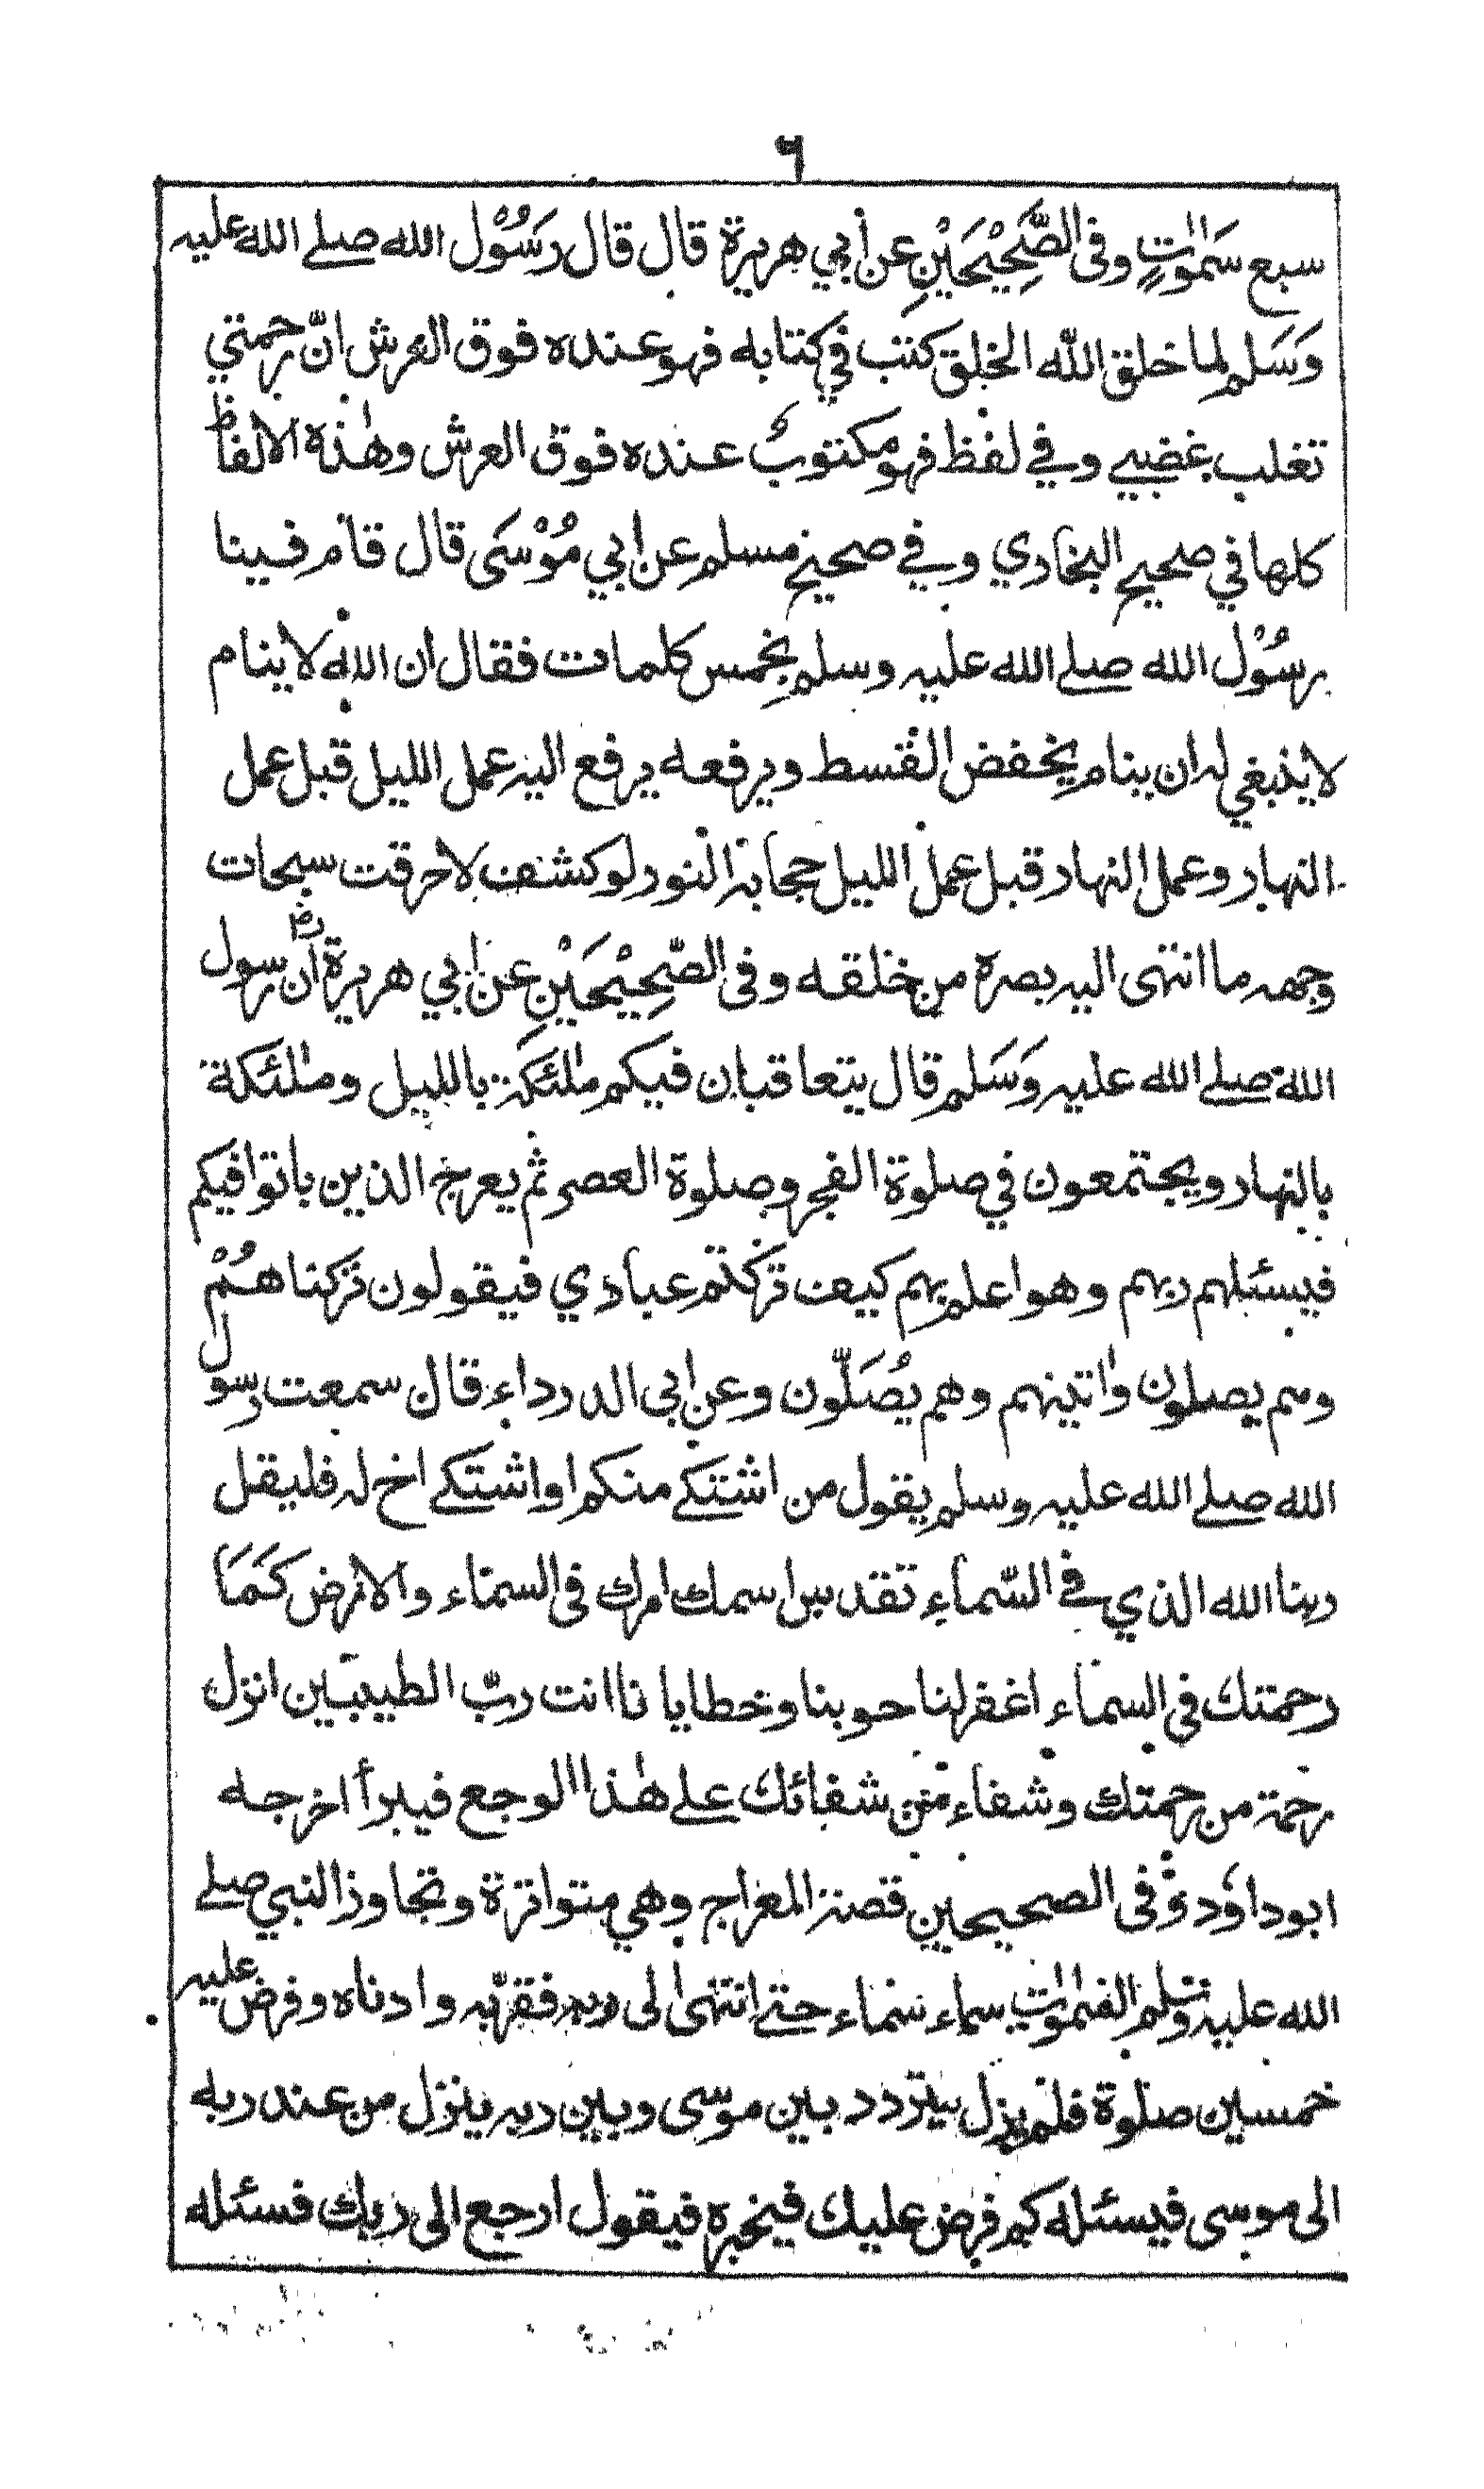 ٦
سبع سَمٰوٰتٍ وفی الصَّحِيْحَيْنِ عن أبي هريرة قال قال رسُوْل الله صلے الله عليه
وَسَلم لما خلق اللّٰه الخلق كتب في كتابه فهو عنده فوق العرش انّ رحمتي
تغلب غضبے وفي لفظ فهو مكتوبٌ عنده فوق العرش وهٰذه الالفاظ
كلها في صحيح البخاري وفي صحيح مسلم عن ابي مُوْسَى قال قام فينا
رسُوْل الله صلے الله عليه وسلم بخمس كلمات فقال ان الله لا ينام
لا ينبغي له ان ينام يخفض القسط ويرفعه يرفع اليه عمل الليل قبل عمل
النهار وعمل النهار قبل عمل الليل حجابه النور لو كشف لاحرقت سبحات
وجهه ما انتهى اليه بصره من خلقه وفی الصّحِيْحَيْنِ عن ابي هريرة رض ان رسول
الله صلے الله عليه وَسَلم قال يتعاقبان فيكم ملٰئكة بالليل وملٰئكة
بالنهار ويجتمعون في صلوة الفجر وصلوة العصر ثم يعرج الذين باتوا فيكم
فيسئلهم ربهم وهو اعلم بهم كيف تركتم عبادي فيقولون تركنا هُمْ
وهم يصلون واتينهم وهم يُصَلّون وعن ابی الدرداء قال سمعت رسول
الله صلے الله عليه وسلم يقول من اشتكے منكم او اشتكے اخ له فليقل
ربنا الله الذي في السّماء تقدس اسمك امرك فی السماء والارض كَمَا
رحمتك فی السماء اغفر لنا حوبنا وخطايا نا انت ربّ الطيبين انزل
رحمة من رحمتك وشفاء من شفائك علے هٰذا الوجع فيبرأ اخرجه
ابو داؤد وفی الصحيحين قصة المعراج وهي متواترة وتجاوز النبي صلے
الله عليه وسلم السمٰوٰت سماء سماء حتے انتهىٰ الى ربه فقرّبه وادناه وفرض عليه
خمسين صلوة فلم يزل يتردد بين موسى وبين ربه ينزل من عند ربه
الى موسى فيسئله كم فرض عليك فيخبره فيقول ارجع الى ربك فسئله